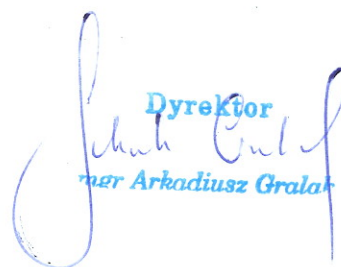 Dyrektor
mgr Arkadiusz Gralak